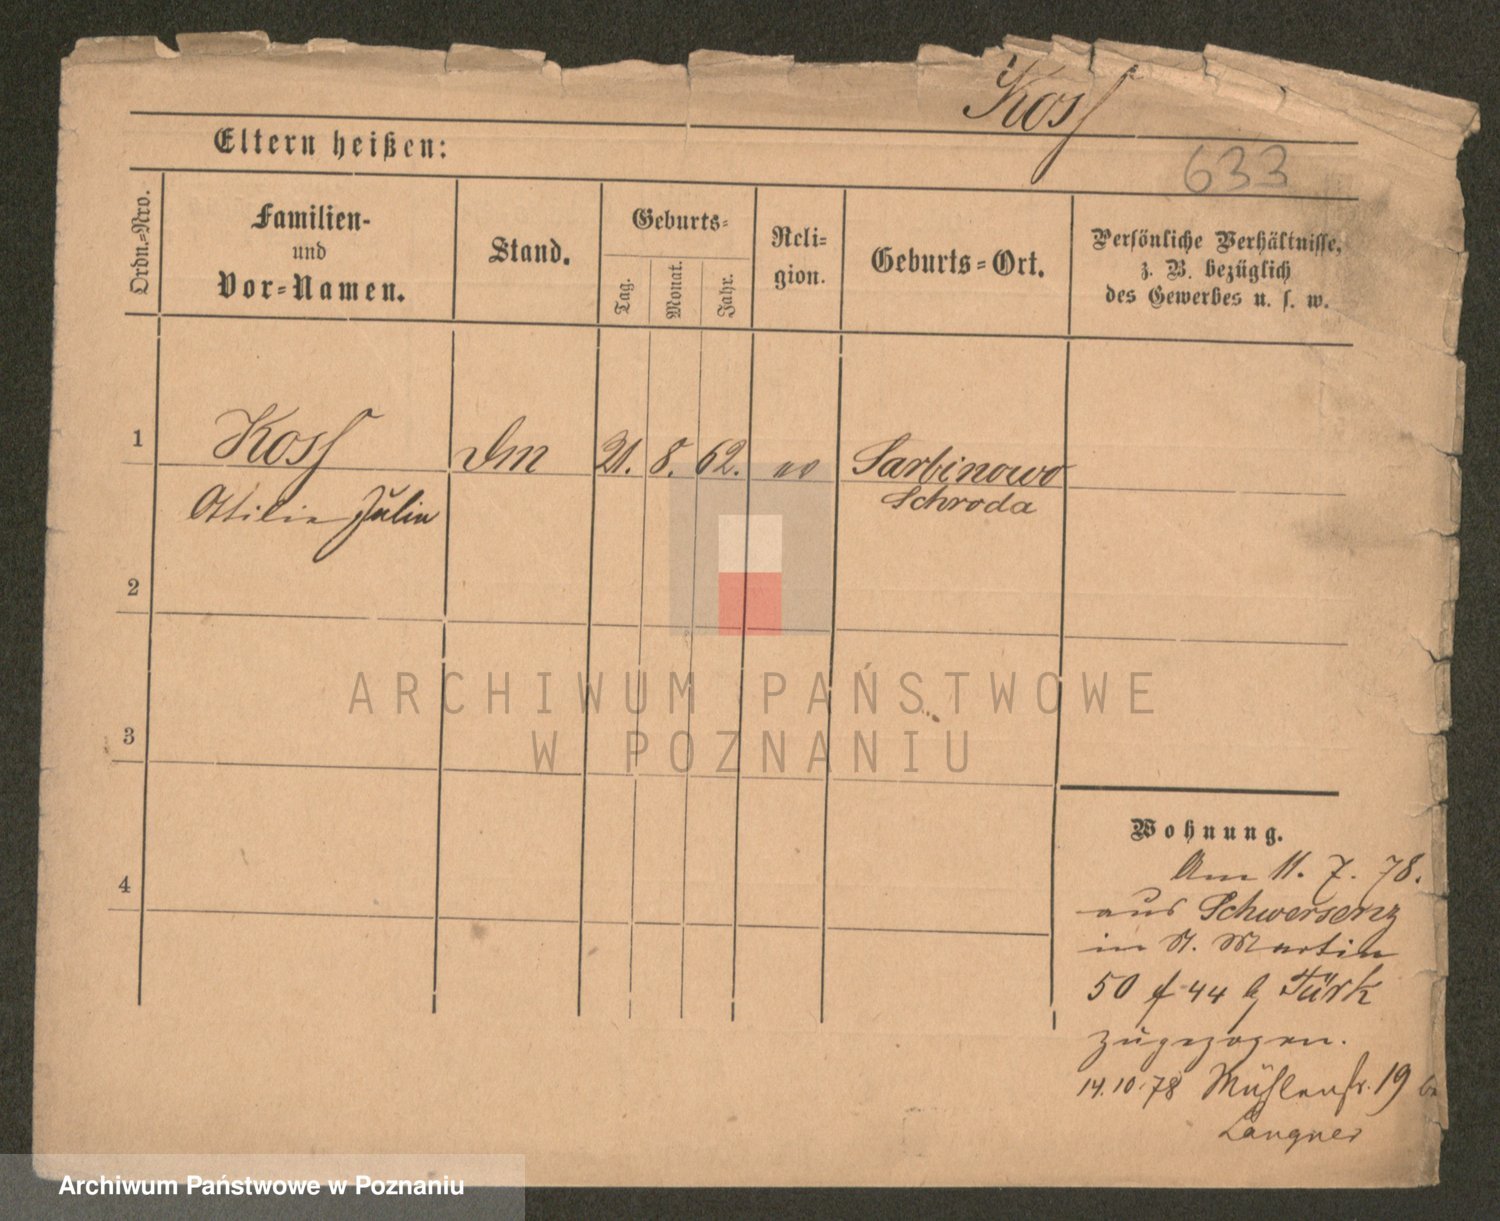 Koss
Eltern heißen:
633
Ordn.-Nro.
Familien-
und
Vor-Namen.
Stand.
Geburts-
Tag.
Monat.
Jahr.
Reli-
gion.
Geburts-Ort.
Persönliche Verhältnisse,
z. B. bezüglich
des Gewerbes u. s. w.
1 Koss Dm 21. 8. 62. Sarbinowo
Ottilie Julie Schroda
2
3
4
ARCHIWUM PAŃSTWOWE
W POZNANIU
Wohnung.
Am 11. 7. 78.
aus Schwersenz
in St. Martin
50 44 b Türk
zugezogen.
14.10.78 Mühlenstr. 19
Langner
Archiwum Państwowe w Poznaniu